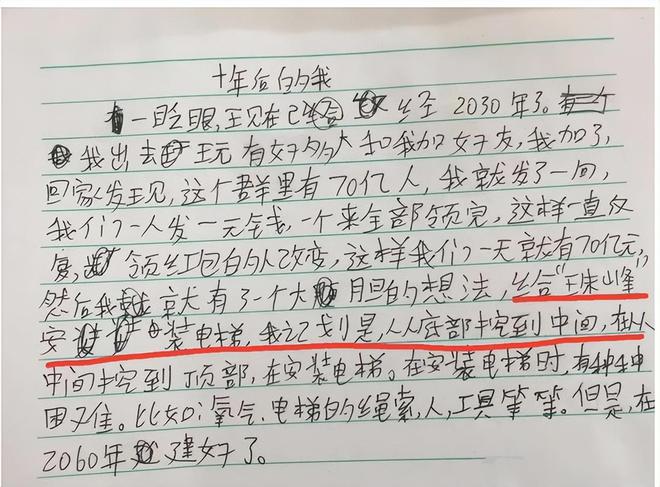 十年后的我
一眨眼,现在已经 2030年了。
我出去玩有好多人和我加好友,我加了,
回家发现,这个群里有70亿人,我就发了一句,
我们一人发一元钱,一个来全部领完,这样一直反
复,领红包的人改变,这样我们一天就有70亿元,
然后我就有了一个大胆的想法,给“珠峰”
安装电梯,我计划是,从底部挖到中间,在从
中间挖到顶部,在安装电梯。在安装电梯时,有种种
困难。比如:氧气、电梯的绳索,人,工具等等。但是,在
2060年建好了。